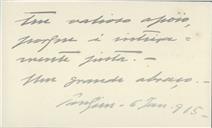 Tem valioso apôio,
porque é inteira-
mente justa. —
Um grande abraço. —
6 Jan. 915 —